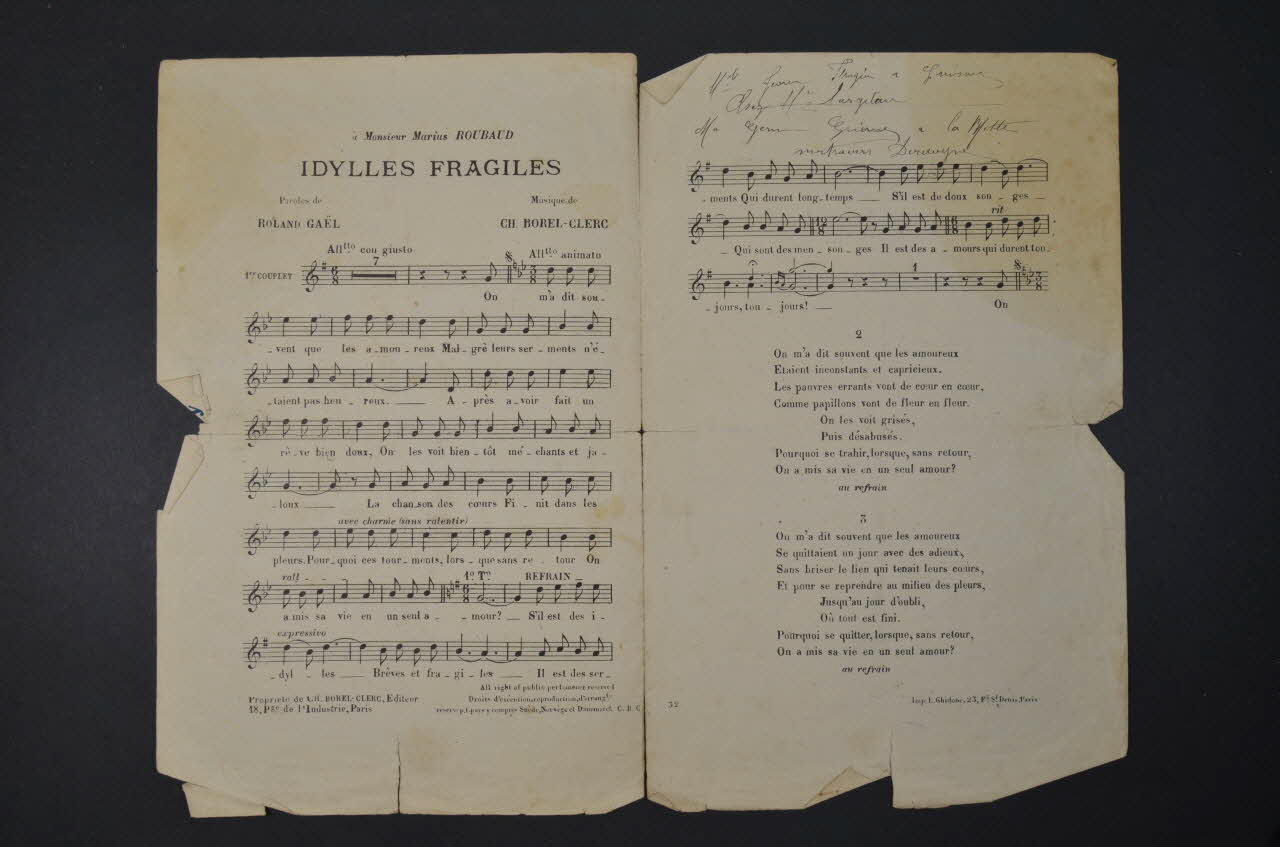 à Monsieur Marius ROUBAUD
IDYLLES FRAGILES
Paroles de
ROLAND GAËL
Musique de
CH. BOREL-CLERC
Allᵗᵗᵒ con giusto
Allᵗᵗᵒ animato
7
1ᵉʳ COUPLET
On m'a dit sou-
-vent que les a-mou-reux Mal-gré leurs ser-ments n'é-
-taient pas heu-reux. A-près a-voir fait un
rê-ve bien doux, On les voit bien-tôt mé-chants et ja-
-loux La chan-son des cœurs Fi-nit dans les
avec charme (sans ralentir)
pleurs. Pour-quoi ces tour-ments, lors-que sans re-tour On
rall
1º Tº
REFRAIN
a mis sa vie en un seul a-mour? S'il est des i-
expressivo
-dyl-les Brèves et fra-gi-les Il est des ser-
Propriété de CH. BOREL-CLERC, Editeur
18, Pᵍᵉ de l'Industrie, Paris
All right of public performence reserved
Droits d'exécution, reproduction, d'arrangᵗˢ
réservés p. t. pays y compris Suède, Norvège et Danemark. C. B. C.
32
à la Motte
-ments Qui durent long-temps S'il est de doux son-ges
rit
Qui sont des men-son-ges Il est des a-mours qui durent tou-
1
-jours, tou-jours! On
2
On m'a dit souvent que les amoureux
Etaient inconstants et capricieux.
Les pauvres errants vont de cœur en cœur,
Comme papillons vont de fleur en fleur.
On les voit grisés,
Puis désabusés.
Pourquoi se trahir, lorsque, sans retour,
On a mis sa vie en un seul amour?
au refrain
3
On m'a dit souvent que les amoureux
Se quittaient un jour avec des adieux,
Sans briser le lien qui tenait leurs cœurs,
Et pour se reprendre au milieu des pleurs,
Jusqu'au jour d'oubli,
Où tout est fini.
Pourquoi se quitter, lorsque, sans retour,
On a mis sa vie en un seul amour?
au refrain
Imp. L. Ghidone, 23, Fᵍ Sᵗ Denis, Paris